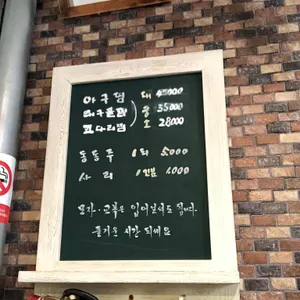 아구찜 대 45000
대구뽈찜 중 35000
코다리찜 소 28000
동동주 1되 5000
사리 1인분 4000
모자·교복은 입어보셔도 됩니다
즐거운 시간 되세요